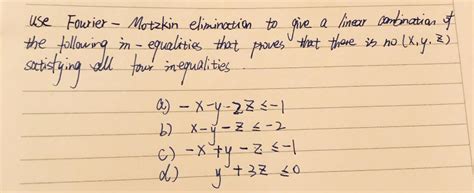 use Fourier - Motzkin elimination to give a linear combination of
the following in-equalities that proves that there is no (x,y,z)
satisfying all four inequalities
a) -x-y-2z ≤ -1
b) x-y-z ≤ -2
c) -x+y-z ≤ -1
d) y+3z ≤ 0